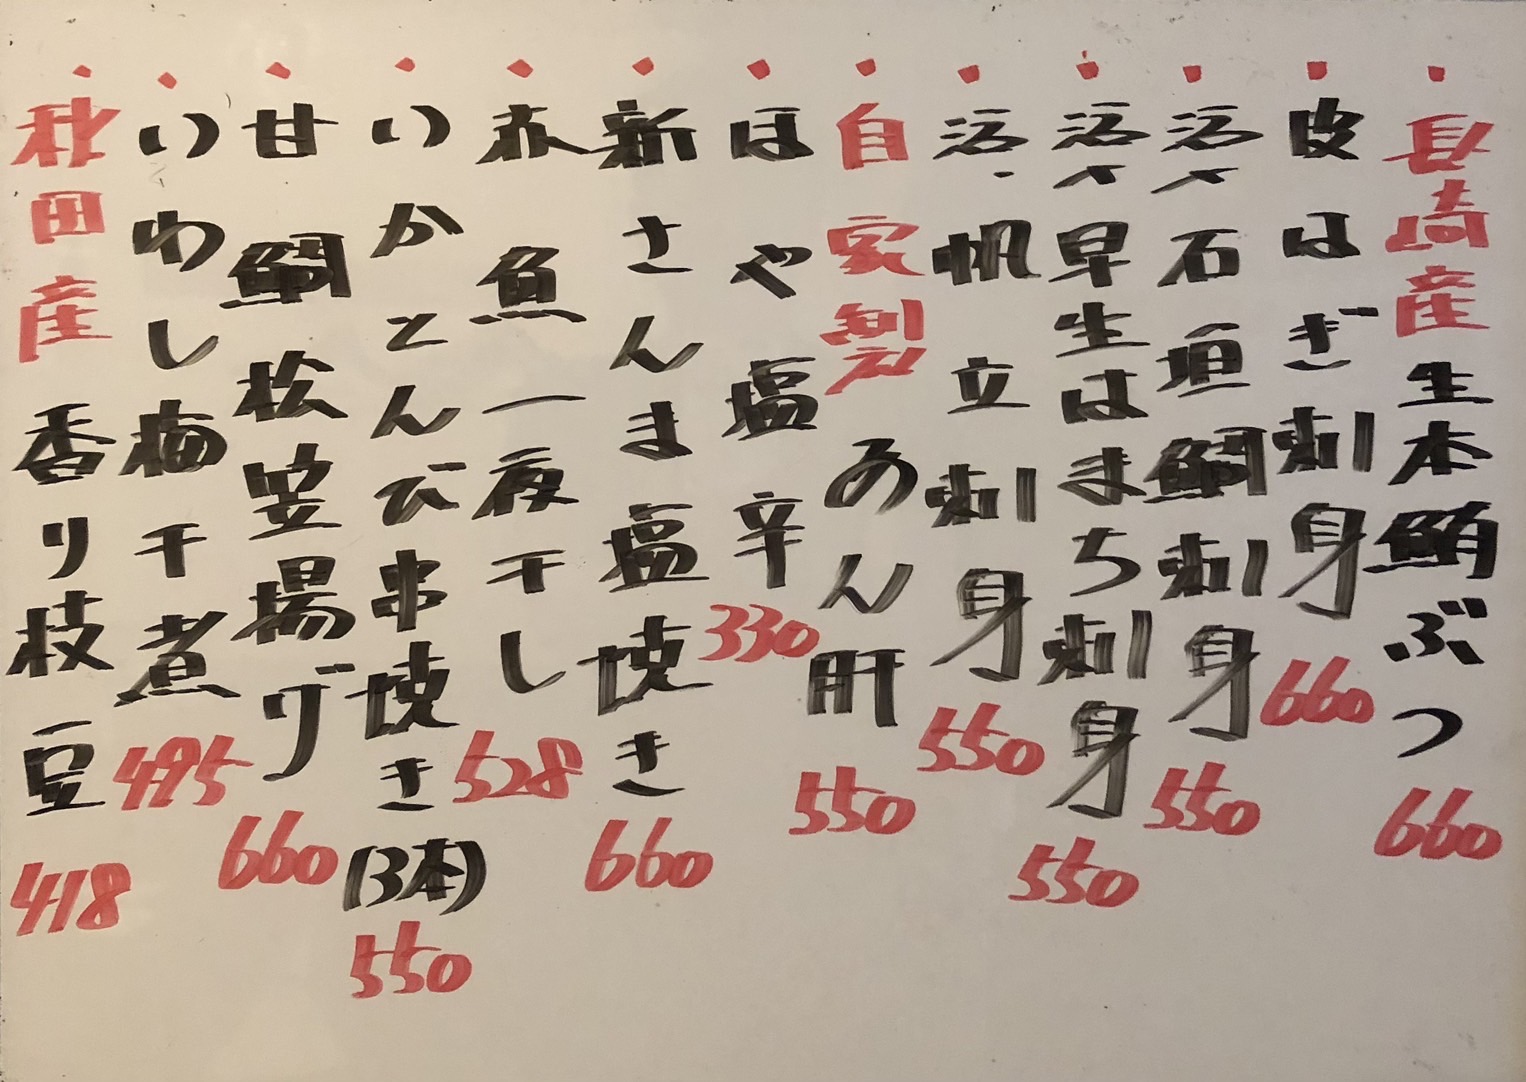 ・長崎産生本鮪ぶつ 660
・皮はぎ刺身 660
・活〆石垣鯛刺身 550
・活〆早生はまち刺身 550
・活・帆立刺身 550
・自家製あん肝 550
・ほや塩辛 330
・新さんま塩焼き 660
・赤魚一夜干し 528
・いかとんび串焼き(3本) 550
・甘鯛松笠揚げ 660
・いわし梅干煮 495
・秋田産香り枝豆 418